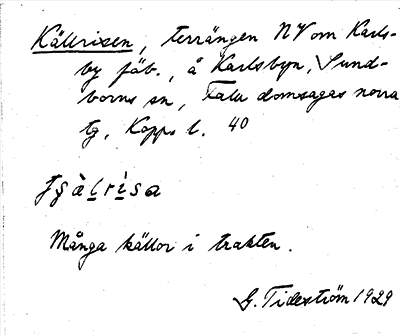 Källrisen, terrängen NV om Karls-
by fäb., å Karlsbyn, Sund-
borns sn, Falu domsagas norra
tg, Kopp. l. 40
tşὰl̥rìsa
Många källor i trakten.
G. Tideström 1929